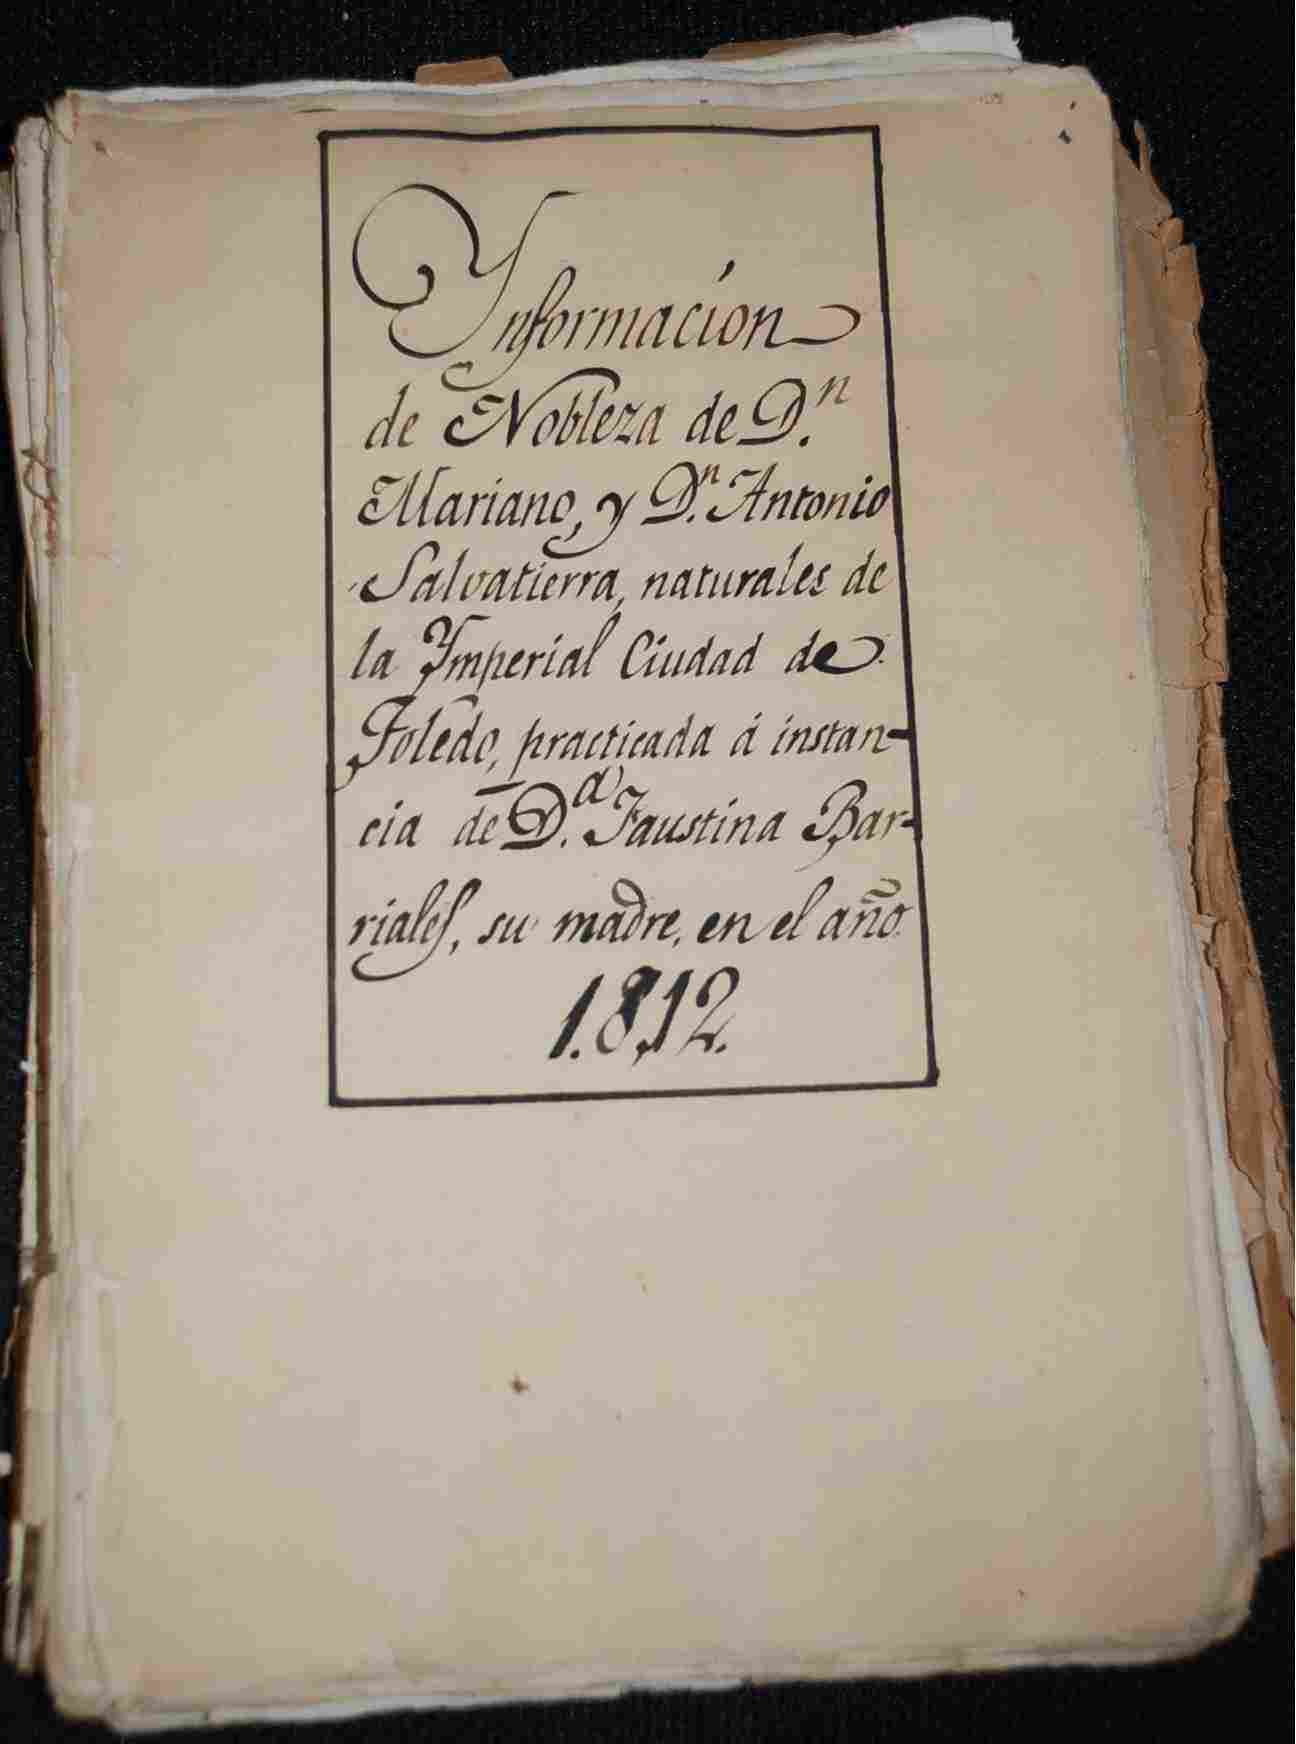 Ynformacíon
de Nobleza de D.ⁿ
Mariano, y D.ⁿ Antonio
Salvatierra, naturales de
la Ymperial Ciudad de
Toledo, practicada á instan-
cia de D.ª Faustina Bar-
riales, su madre, en el año
1.8,12.